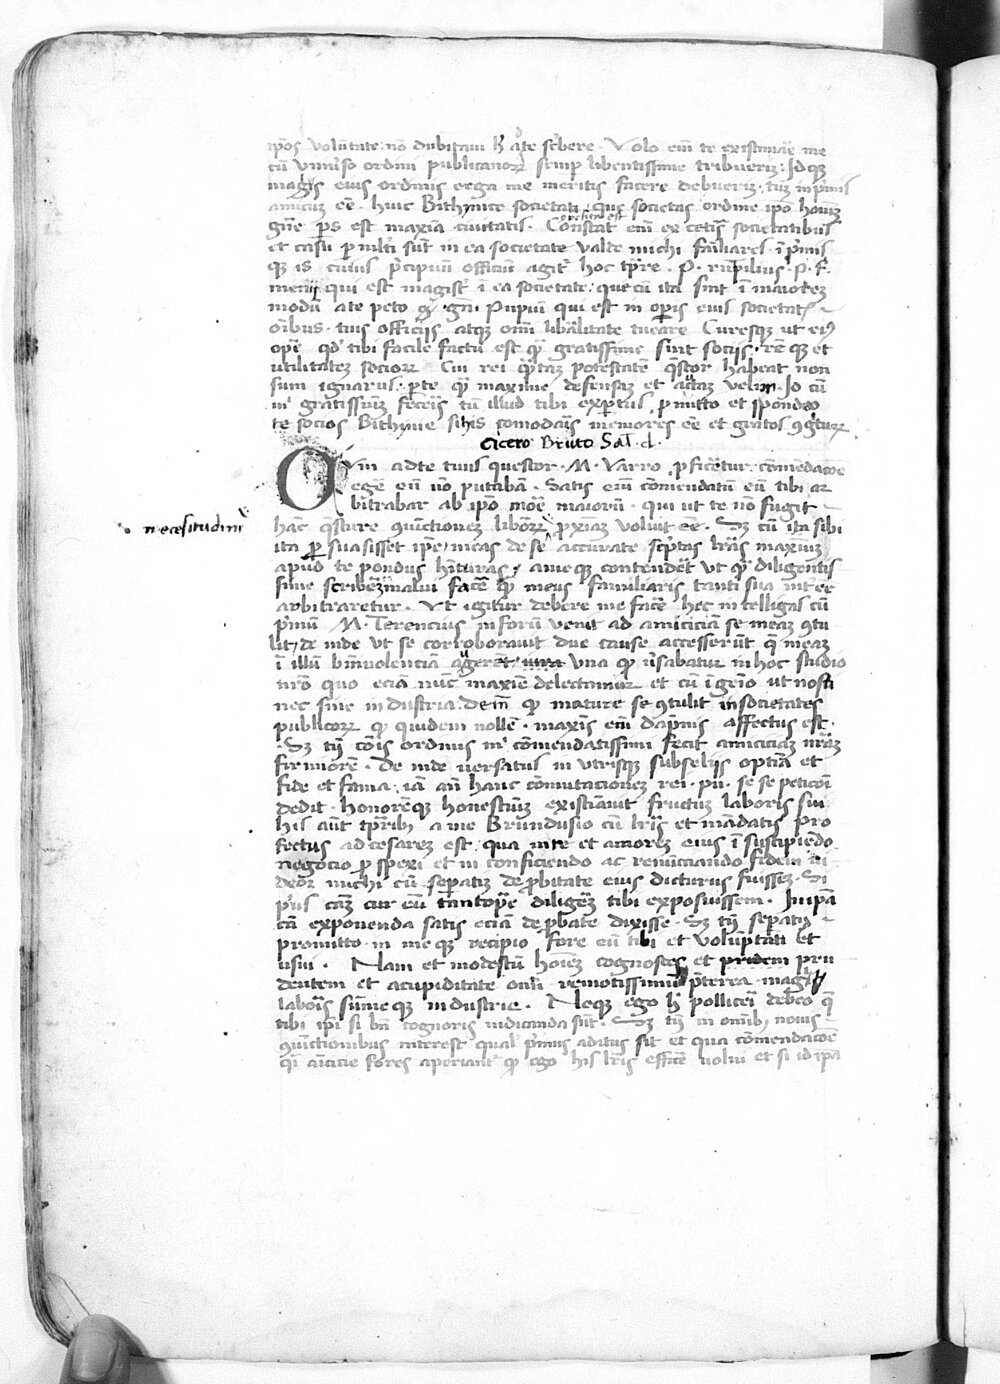 ipōs volūtate nō dubitaui h̄ ad te scͥbere. Volo em̄ te existimāe me
cū vniuͥso ordini publicanoꝝ semꝑ libentissime tribuerīz. Idqꝫ
magis eius ordinis erga me meritis facere debuerīz. tūz inpͥmis
amicuz eē. huic Bithynice societati. que societas ordine ipō homīz
gn̄e ꝑs est maxīa ciuitatis. Constat em̄ ex cetīs societatibus
et casu ꝑmulti sūt in ea societate valde michi familiares. īpͥmis
qꝫ is cuius pͥcipuū officiū agitͬ hoc tꝑre. P. rupilius. P. F.
qui est magistͬ ī ea societate. que cū ita sint ī maiorez
modū a te peto Pupiū qui est in oꝑis eius societatis
oībus tuis officijs atqꝫ om̄i libālitate tueare Curesqꝫ ut eiꝰ
oꝑe qd̓ tibi facile factū est qͣ gratissime sint socijs. rē qꝫ et
utilitatez socioꝝ Cui rei qͣtaz potestatē qͤstor habeat non
sum ignarus. ꝑ te qͣ maxime defensaz et auctaz velim. Io cū
mͥ gratissimūz fecēis tū illud tibi expertus ꝓmitto et spondeo
te socios Bithynie si his comodāis memores eē et gratos ꝯgturꝝ
Cicero Bruto Sal. d.
Vm ad te tuus questor. M. Varro ꝓficēetur cōmēdacōe
egē eū nō putabā. Satis em̄ cōmendatū eū tibi ar
bitrabar ab ipō mōe maiorū. qui ut te nō fugit
necesitudinē
hāc qͤsture ꝯiūctionez libōꝝ ꝓxiaz voluit eē. Sꝫ cū ita sibi
ita ꝑsuasisset ipē meas de se accurate scͥptas lrās maxīuz
apud te pondus hīturas. a meqꝫ contendēt ut qͣ diligentis
sime scriberēz malui facē qd̓ meus familiaris tanti sua int̄ eē
arbitraretur. Vt igitur debere me facē hec intelligas cū
pͥmū M. Terencius in forū venit ad amiciciā se meaz ꝯtu
lit. de inde vt se corroborauit due cause accesserūt qͤ meaz
ī illū beniuolenciā augerēt. una qd̓ uͥsabatur in hoc studio
nr̄o quo eciā nūc maxīe delectamur et cū īgeīo ut nosti
nec sine industria. deīn qd̓ mature se ꝯtulit in societates
publicoꝝ qd̓ quidem nollē. maxīs em̄ dāpnis affectus est.
Sꝫ tn̄ cōis ordinis mͥ cōmendatissimi fecit amiciciaz nr̄az
firmiorē. De inde versatus in utrisqꝫ subselijs optīa et
fide et fama. iā an̄ hanc cōmutacionez rei. pu. se se peticoī
dedit. honorēqꝫ honestūz existimāuit fructuz laboris sui
his aūt tꝑribꝫ a me Brundusio cū lrīs et mādatis pro
fectus ad cesarez est. qua in re et amorez eius ī suscipiēdo
negocio ꝓspexi et in conficiendo ac renūciando fidem vi
deōr michi cū seꝑatiz de ꝓbitate eius dicturus fuissez. Si
pͥus cāz cur eū tantopēe diligēz tibi exposuissem. In ipā
cā exponenda satis eciā de ꝓbitate dixisse. Sꝫ tn̄ seꝑatiꝫ
promitto. in meqꝫ recipio fore eū tibi et voluptāti et
usui. Nam et modestū hoīez cognosces et pru
dentem et a cupiditate om̄i remotissimū pͥterea magni
labōis sūmeqꝫ industrie. Neqꝫ ego h̄ polliceri debeo qͤ
tibi ipī si bn̄ cognoris iudicanda sūt. Sꝫ tn̄ in omībꝫ nouis
ꝯiūctionibus interest qualͥ pͥmus aditus sit et qua cōmendacōe
qͣͥ aicitie fores aperiantͬ qd̓ ego his lrīs efficē volui et si id ipā